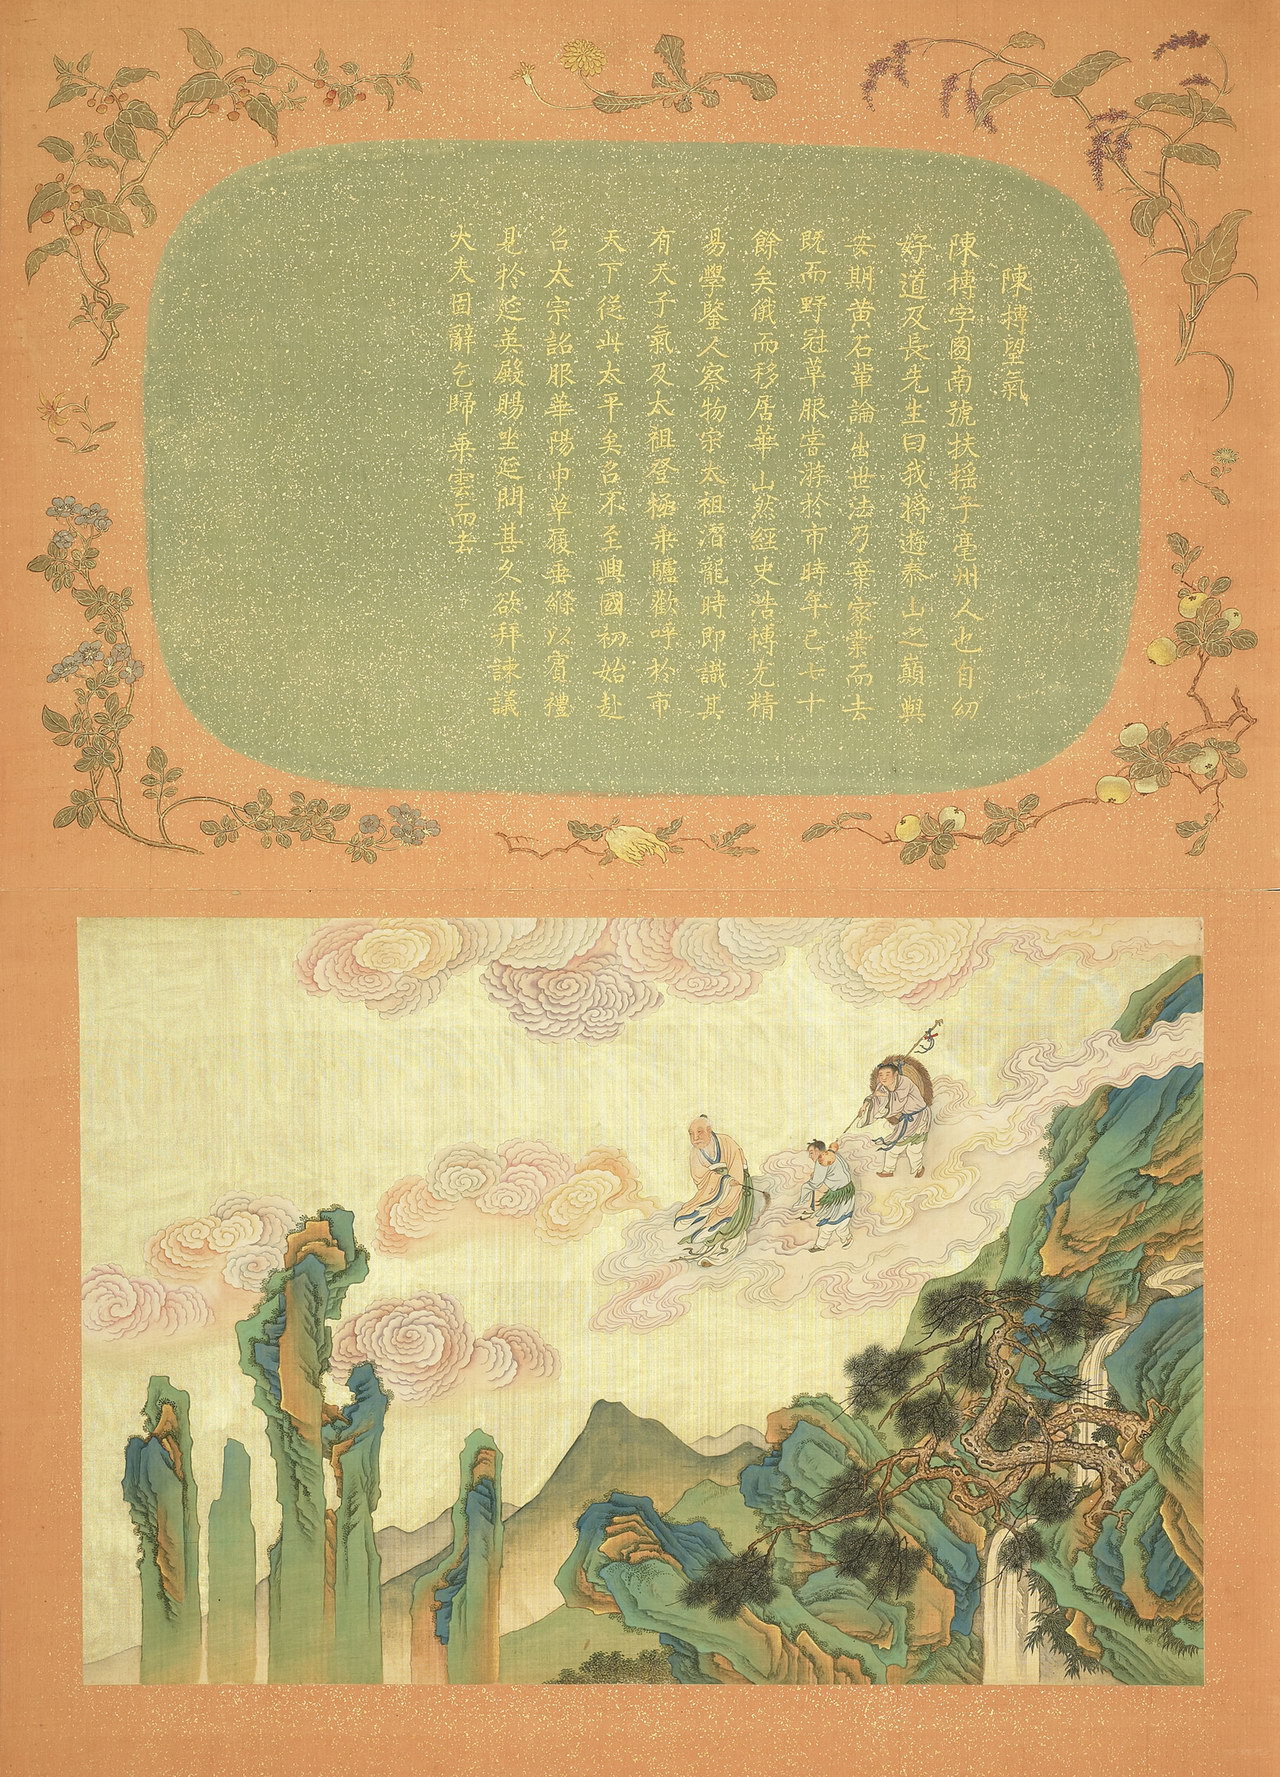 陳摶望氣
陳摶字圖南號扶搖子亳州人也自幼
好道及長先生曰我將遊泰山之巔與
安期黃石輩論出世法乃棄家業而去
既而野冠草服嘗游於市時年已七十
餘矣俄而移居華山然經史浩博尤精
易學鑒人察物宋太祖潛龍時即識其
有天子氣及太祖登極乘驢歡呼於市
天下從此太平矣召不至興國初始赴
召太宗詔服華陽巾草履垂縧以賓禮
見於延英殿賜坐延問甚久欲拜諫議
大夫固辭乞歸乘雲而去